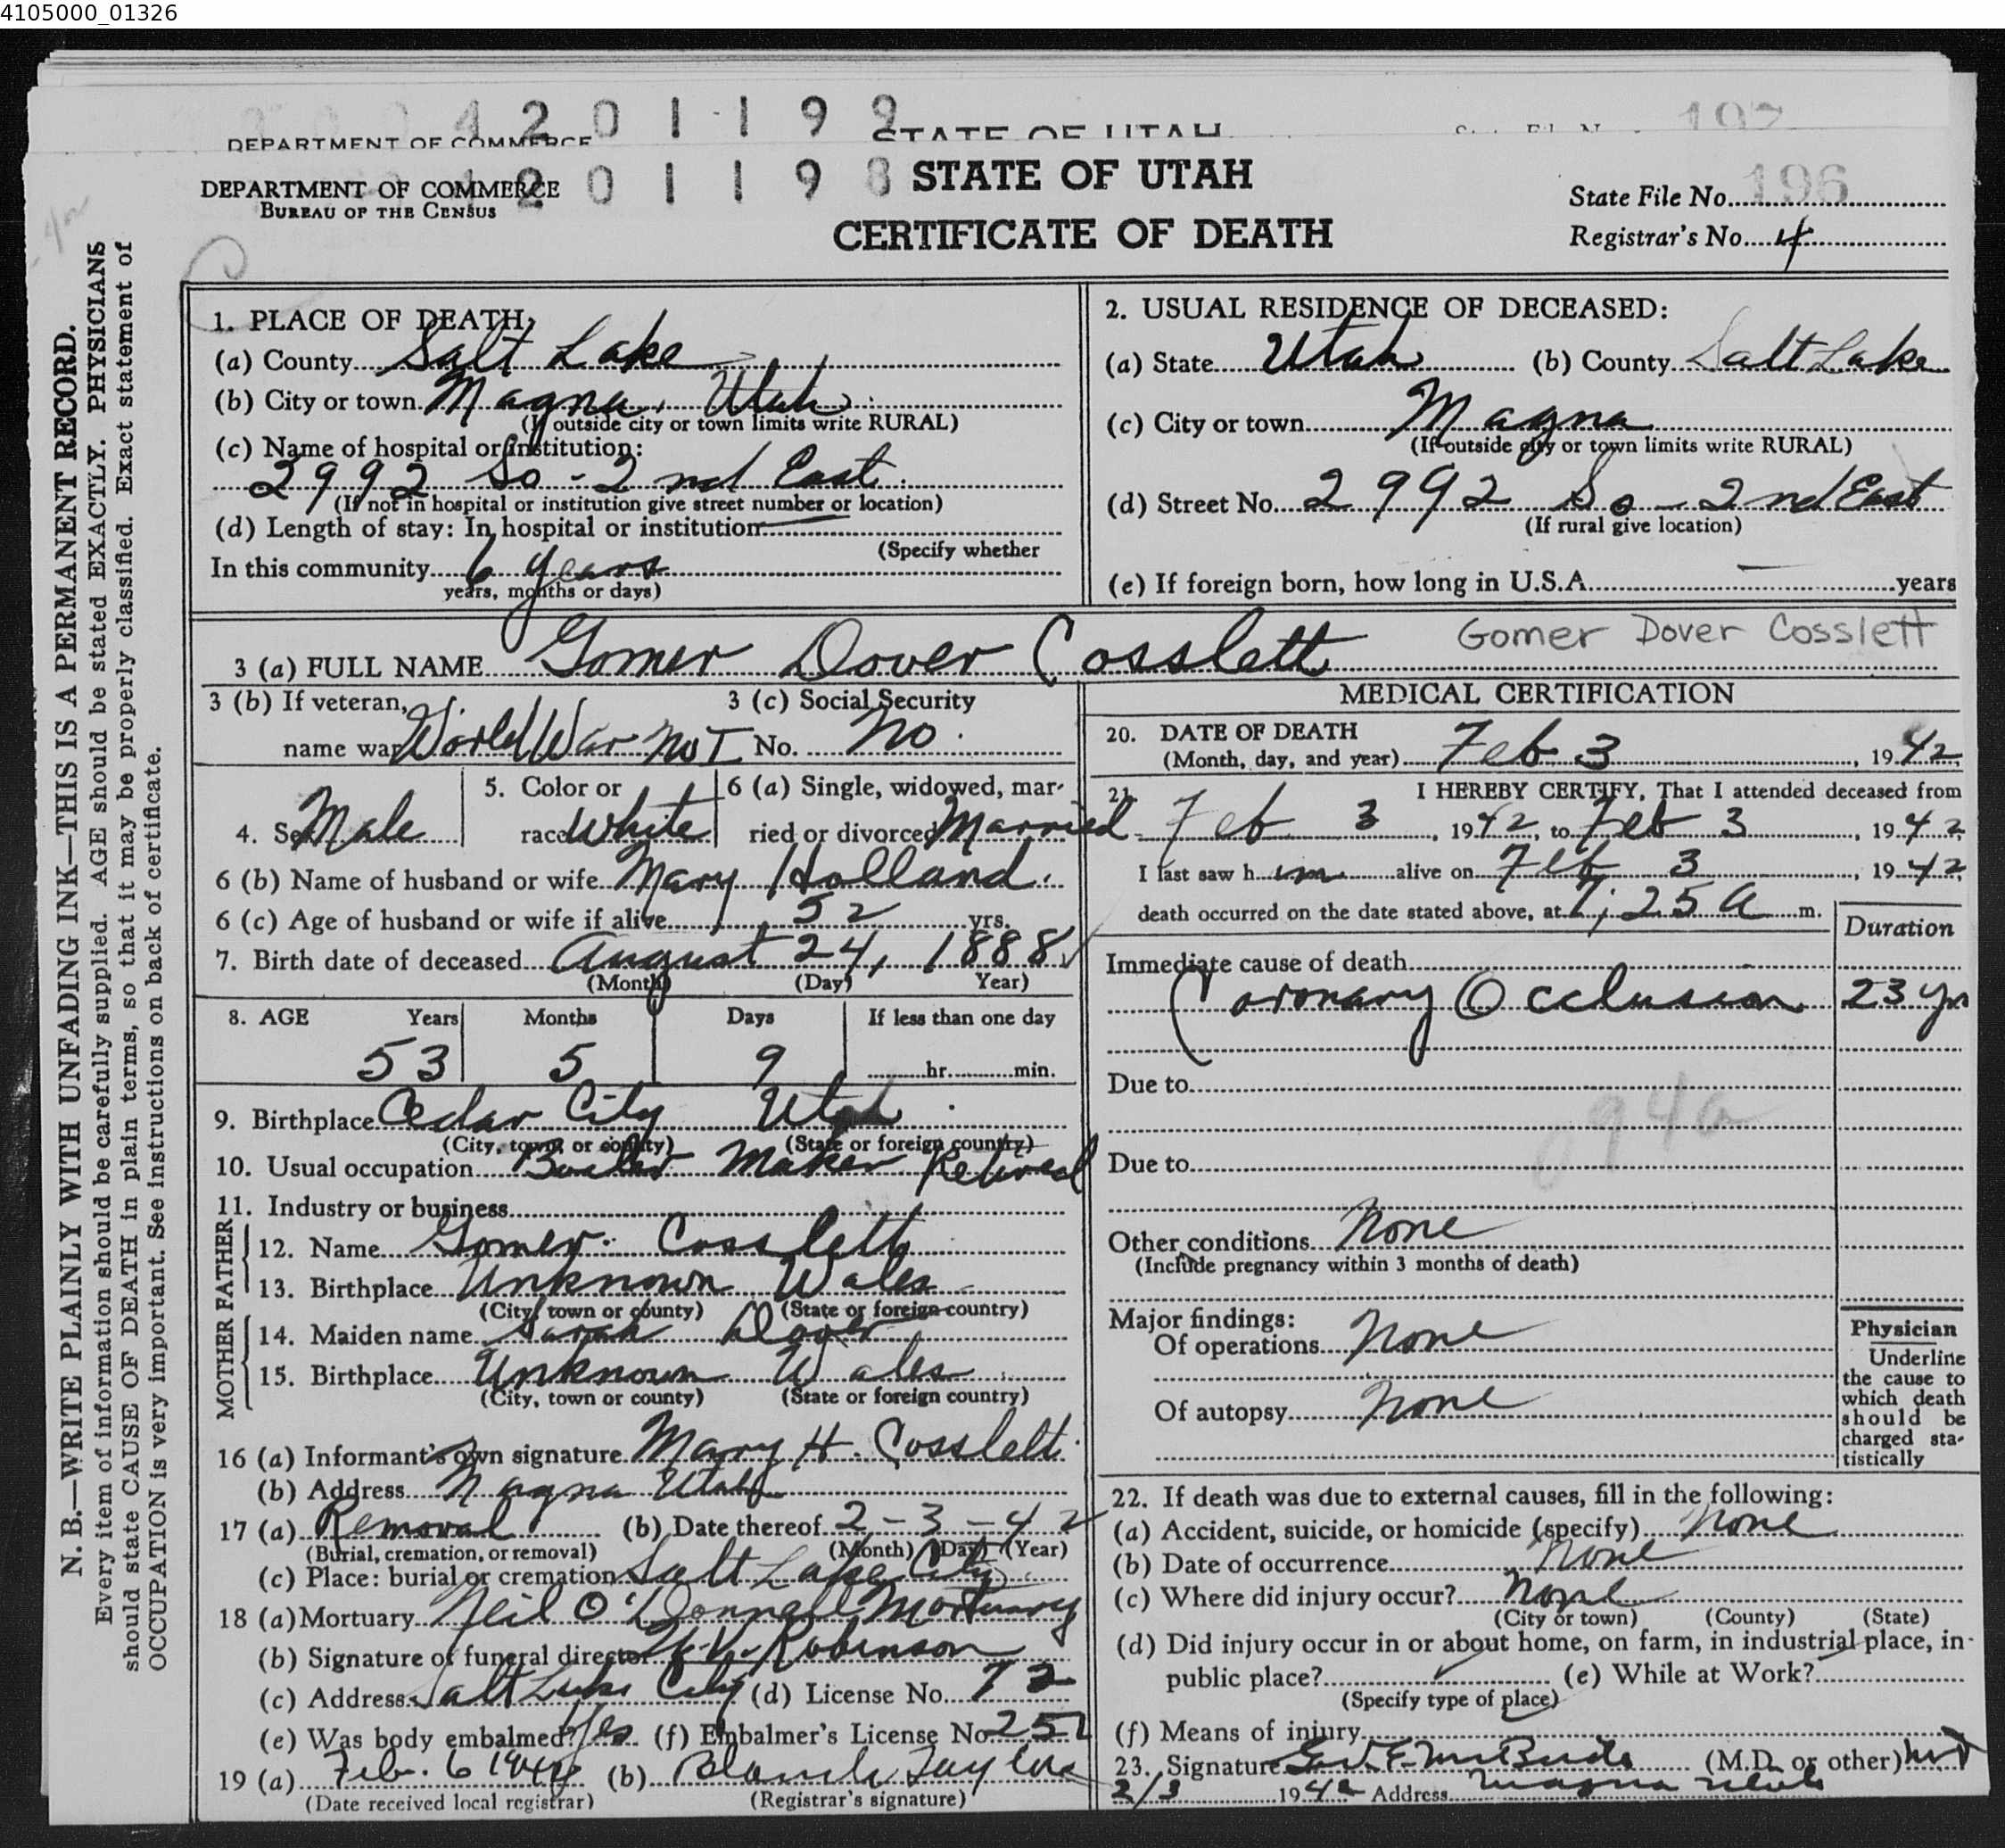 4105000_01326
4 2 0 1 1 9 9
DEPARTMENT OF COMMERCE STATE OF UTAH 197
2 0 1 1 9 8
DEPARTMENT OF COMMERCE
BUREAU OF THE CENSUS
STATE OF UTAH
CERTIFICATE OF DEATH
State File No. 196
Registrar's No. 4
N. B.—WRITE PLAINLY WITH UNFADING INK—THIS IS A PERMANENT RECORD.
Every item of information should be carefully supplied. AGE should be stated EXACTLY. PHYSICIANS
should state CAUSE OF DEATH in plain terms, so that it may be properly classified. Exact statement of
OCCUPATION is very important. See instructions on back of certificate.
1. PLACE OF DEATH:
(a) County Salt Lake
(b) City or town Magna, Utah
(If outside city or town limits write RURAL)
(c) Name of hospital or institution:
2992 So - 2nd East
(If not in hospital or institution give street number or location)
(d) Length of stay: In hospital or institution
(Specify whether
In this community 6 years
years, months or days)
2. USUAL RESIDENCE OF DECEASED:
(a) State Utah (b) County Salt Lake
(c) City or town Magna
(If outside city or town limits write RURAL)
(d) Street No. 2992 So - 2nd East
(If rural give location)
(e) If foreign born, how long in U.S.A. — years
3 (a) FULL NAME Gomer Dover Cosslett Gomer Dover Cosslett
3 (b) If veteran, 3 (c) Social Security
name war World War No I No. No.
4. Sex Male
5. Color or
race White
6 (a) Single, widowed, mar-
ried or divorced Married
6 (b) Name of husband or wife Mary Holland.
6 (c) Age of husband or wife if alive 52 yrs.
7. Birth date of deceased August 24, 1888
(Month) (Day) Year)
8. AGE Years Months Days If less than one day
53 5 9 hr. min.
9. Birthplace Cedar City Utah
(City, town, or county) (State or foreign country)
10. Usual occupation Boiler Maker Retired
11. Industry or business
FATHER
12. Name Gomer Cosslett
13. Birthplace Unknown Wales
(City, town or county) (State or foreign country)
MOTHER
14. Maiden name Sarah Dover
15. Birthplace Unknown Wales
(City, town or county) (State or foreign country)
16 (a) Informant's own signature Mary H. Cosslett
(b) Address Magna Utah
17 (a) Removal (b) Date thereof 2-3-42
(Burial, cremation, or removal) (Month) (Day) (Year)
(c) Place: burial or cremation Salt Lake City
18 (a) Mortuary Neil O'Donnell Mortuary
(b) Signature of funeral director Robinson
(c) Address Salt Lake City (d) License No. 72
(e) Was body embalmed? Yes (f) Embalmer's License No. 252
19 (a) Feb. 6 (b) Taylor
(Date received local registrar) (Registrar's signature)
MEDICAL CERTIFICATION
20. DATE OF DEATH
(Month, day, and year) Feb 3, 1942
21. I HEREBY CERTIFY, That I attended deceased from
Feb 3, 1942, to Feb 3, 1942
I last saw him alive on Feb 3, 1942,
death occurred on the date stated above, at 7:25 A m.
Duration
Immediate cause of death
Coronary Occlusion 23 yrs
Due to
094a
Due to
Other conditions None
(Include pregnancy within 3 months of death)
Major findings:
Of operations None
Of autopsy None
Physician
Underline
the cause to
which death
should be
charged sta-
tistically
22. If death was due to external causes, fill in the following:
(a) Accident, suicide, or homicide (specify) None
(b) Date of occurrence None
(c) Where did injury occur? None
(City or town) (County) (State)
(d) Did injury occur in or about home, on farm, in industrial place, in
public place? (e) While at Work?
(Specify type of place)
(f) Means of injury
23. Signature (M.D. or other) MD
2/3 1942 Address Magna Utah